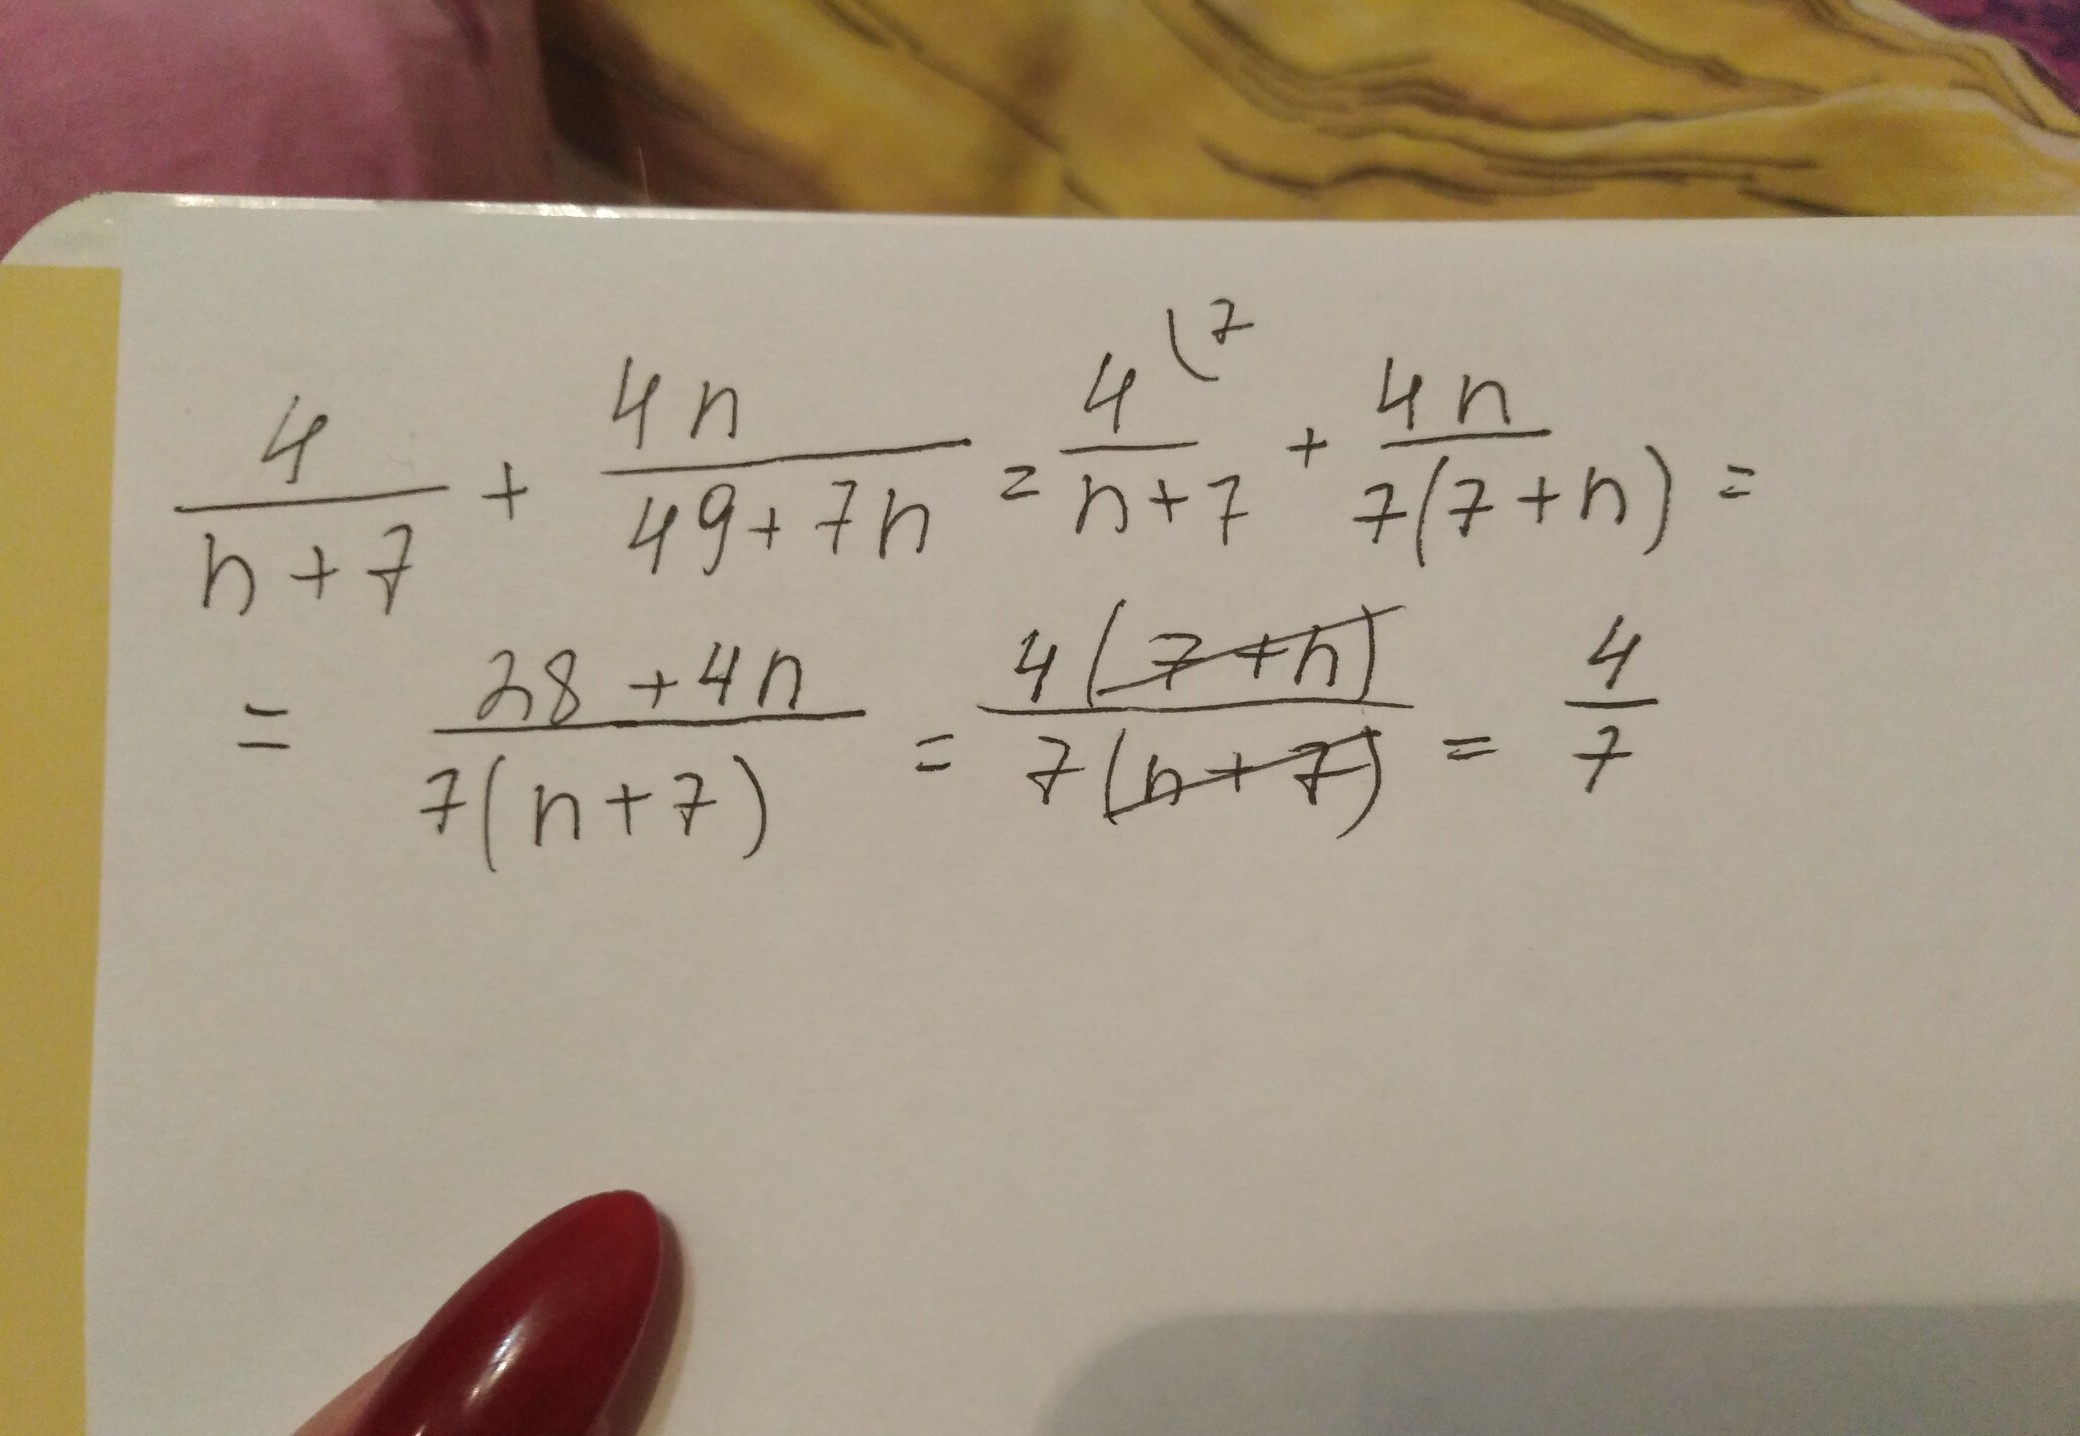 4/(n+7) + 4n/(49+7n) = 4/(n+7) (7 + 4n/(7(7+n)) =
= (28+4n)/(7(n+7)) = 4(7+n)/(7(n+7)) = 4/7